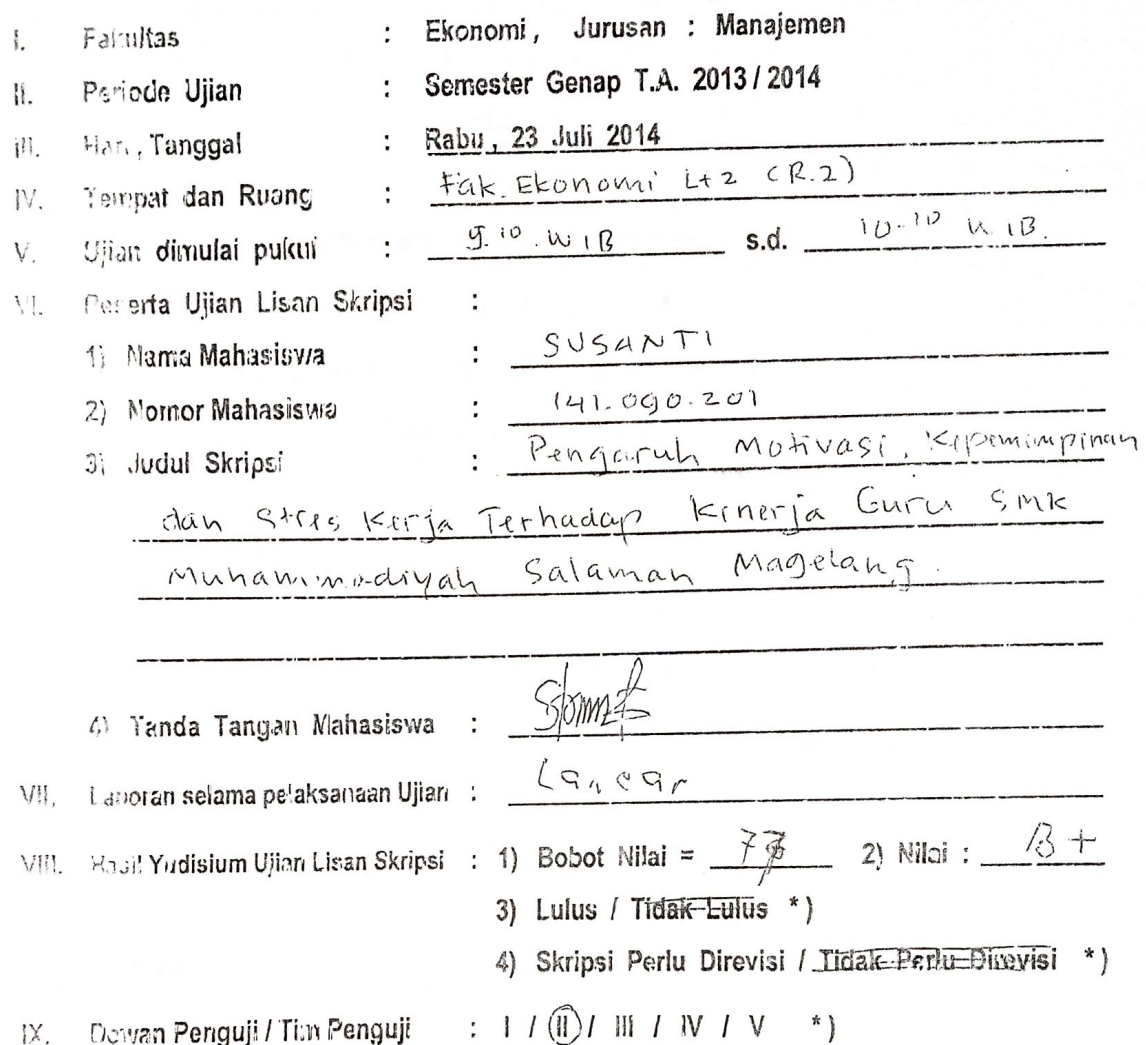 I. Fakultas : Ekonomi, Jurusan : Manajemen
II. Periode Ujian : Semester Genap T.A. 2013 / 2014
III. Hari, Tanggal : Rabu, 23 Juli 2014
IV. Tempat dan Ruang : Fak. Ekonomi Lt 2 (R.2)
V. Ujian dimulai pukul : 9.10 . WIB s.d. 10.10 WIB.
VI. Peserta Ujian Lisan Skripsi :
1) Nama Mahasiswa : SUSANTI
2) Nomor Mahasiswa : 141.090.201
3) Judul Skripsi : Pengaruh Motivasi, Kepemimpinan
dan Stres Kerja Terhadap Kinerja Guru SMK
Muhammadiyah Salaman Magelang.
4) Tanda Tangan Mahasiswa :
VII. Laporan selama pelaksanaan Ujian : Lancar
VIII. Hasil Yudisium Ujian Lisan Skripsi : 1) Bobot Nilai = 2) Nilai : B +
3) Lulus / Tidak Lulus *)
4) Skripsi Perlu Direvisi / Tidak Perlu Direvisi *)
IX. Dewan Penguji / Tim Penguji : I / II / III / IV / V *)